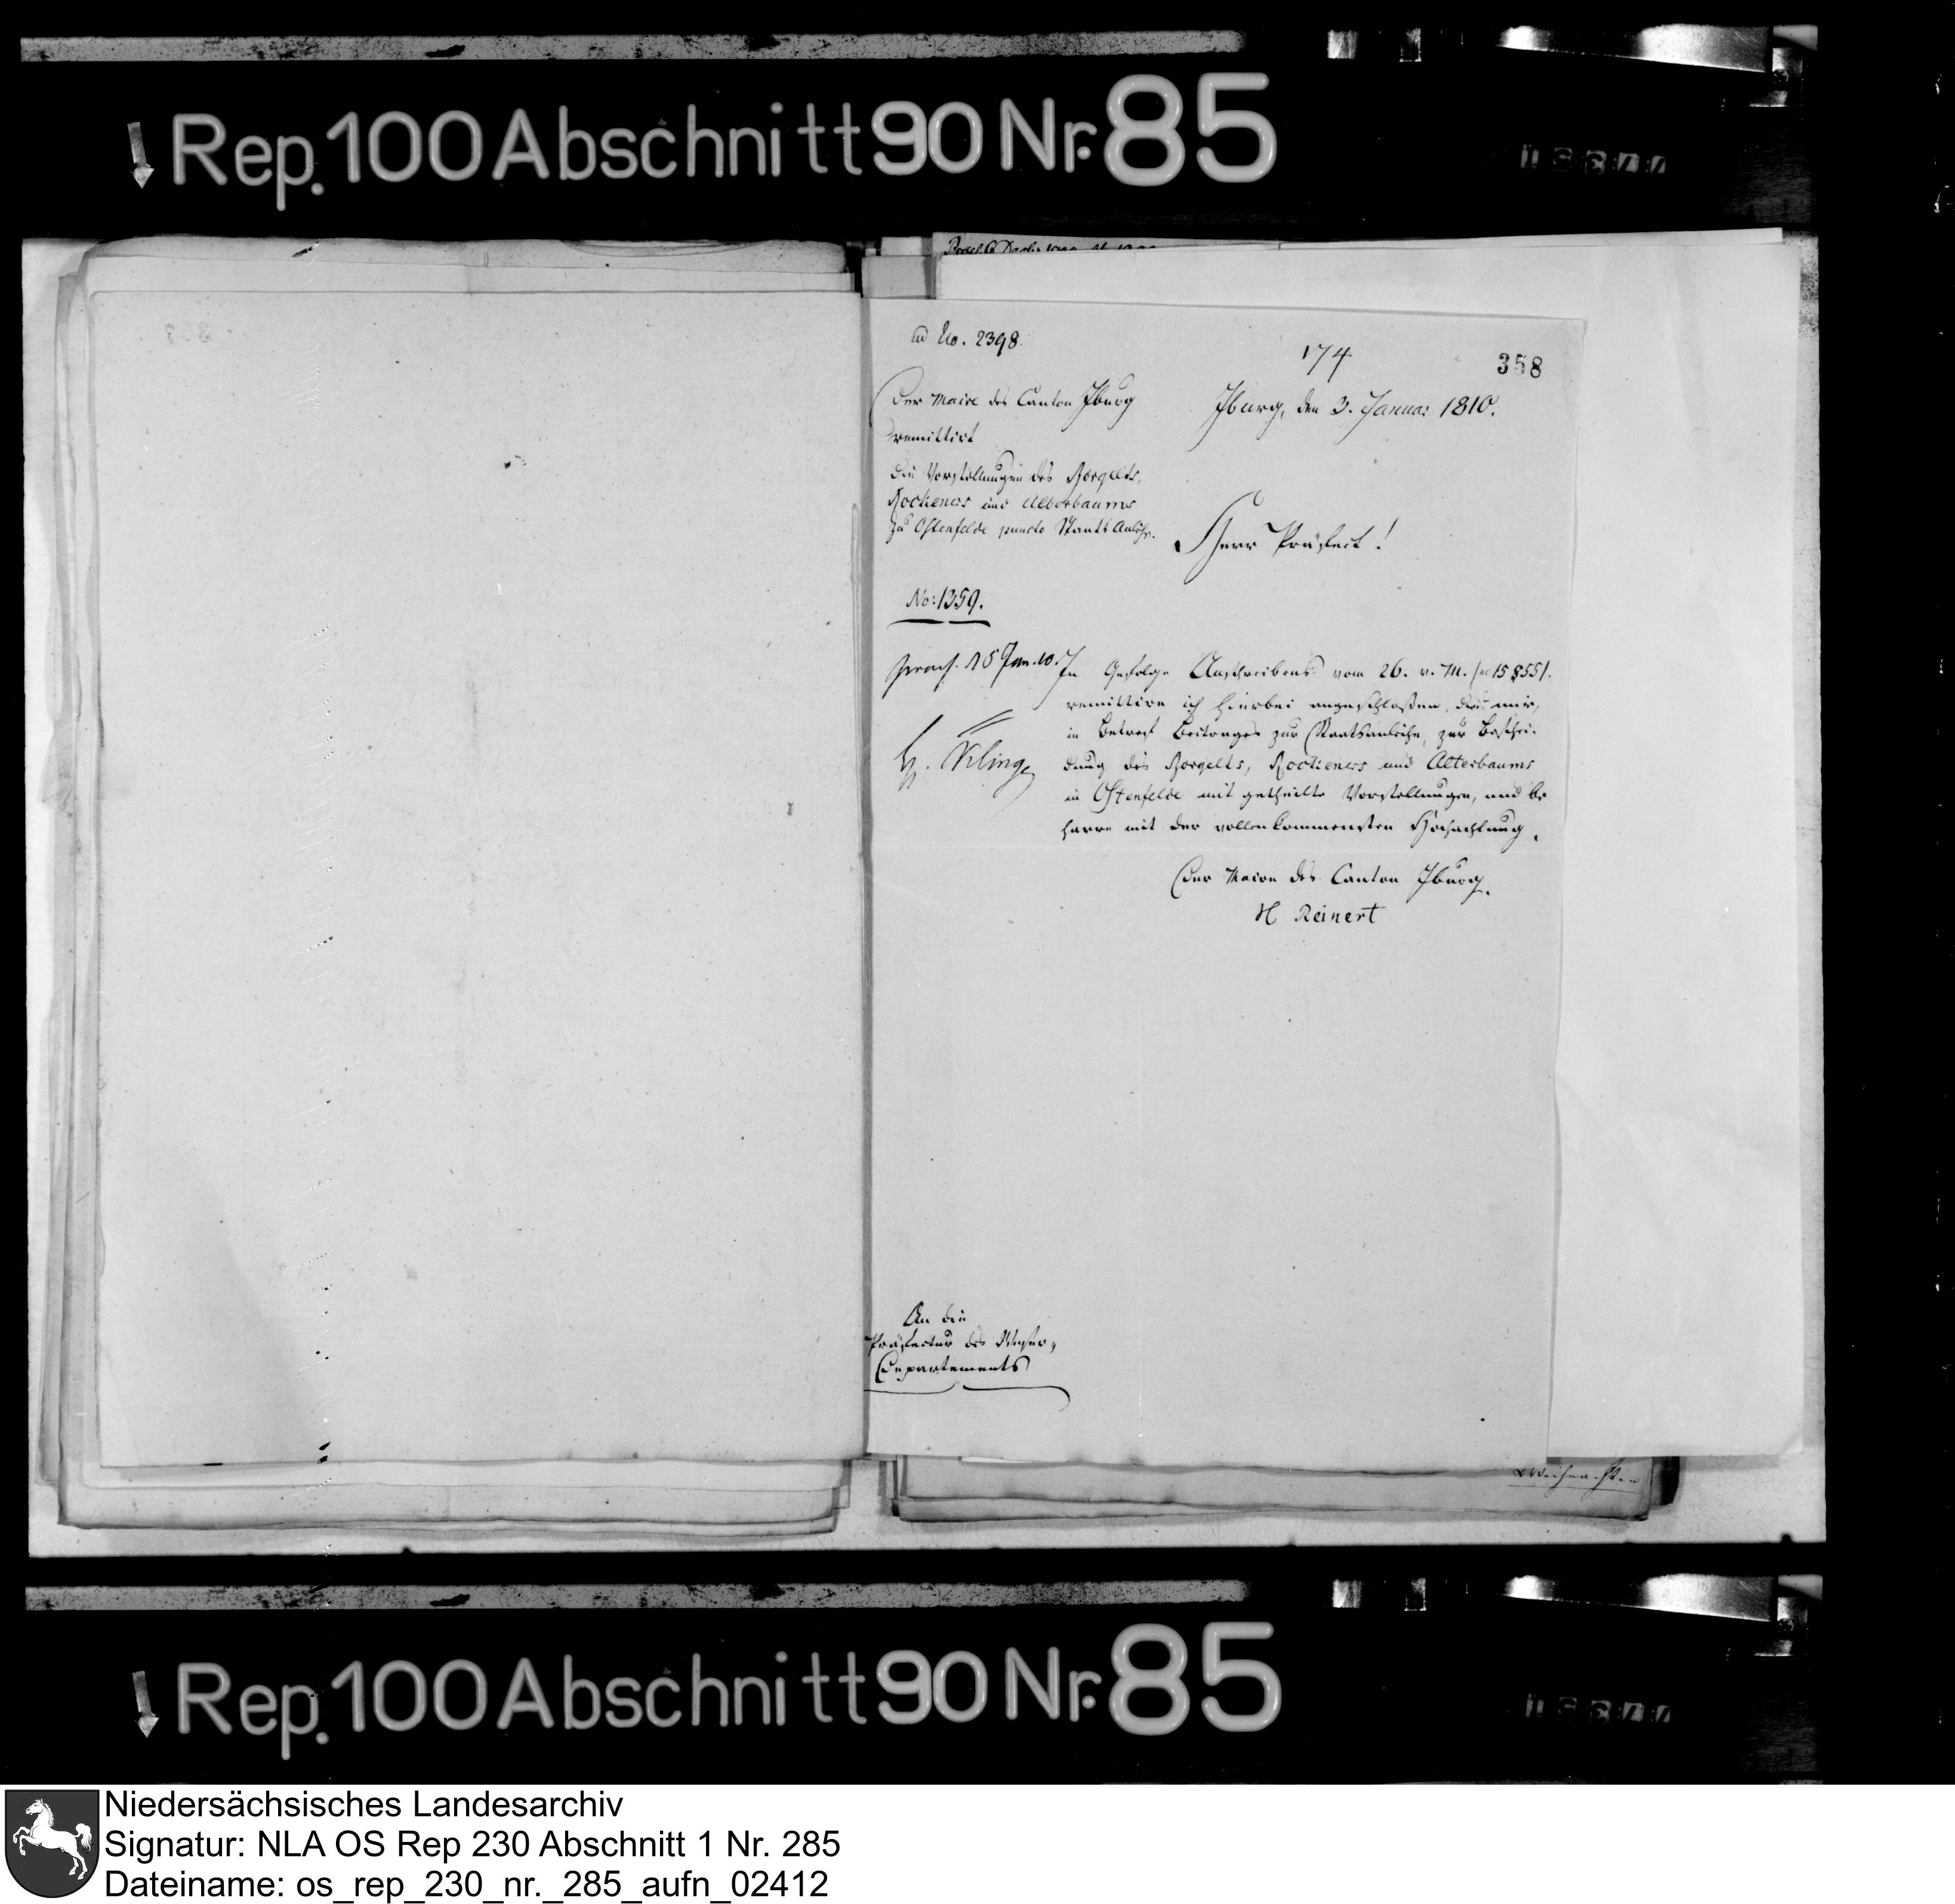 Rep. 100 Abschnitt 90 Nr. 85
ad No. 2398.
174
358
Der Maire des Canton Iburg
remittirt
die Vorstellungen des Borgelts,
Rockeners und Alterbaums
zu Ostenfelde puncto Staats Anleihe.
Iburg, den 3. Januar 1810.
Herr Präfect!
No: 1359.
praes. 15 Jan. 10.
In Gefolge Anschreibens vom 26. v. M.
remittire ich hierbei angeschloßen, die mir,
in Betreff Beitrages zur Staatsanleihe, zur Beschei-
dung des Borgelts, Rockeners und Alterbaums
in Ostenfelde mit getheilte Vorstellungen, und be
harre mit der vollenkommensten Hochachtung.
Der Maire des Canton Iburg.
H Reinert
An die
Präfectur des Weser,
Departements
Weihnachten
Rep. 100 Abschnitt 90 Nr. 85
Niedersächsisches Landesarchiv
Signatur: NLA OS Rep 230 Abschnitt 1 Nr. 285
Dateiname: os_rep_230_nr._285_aufn_02412